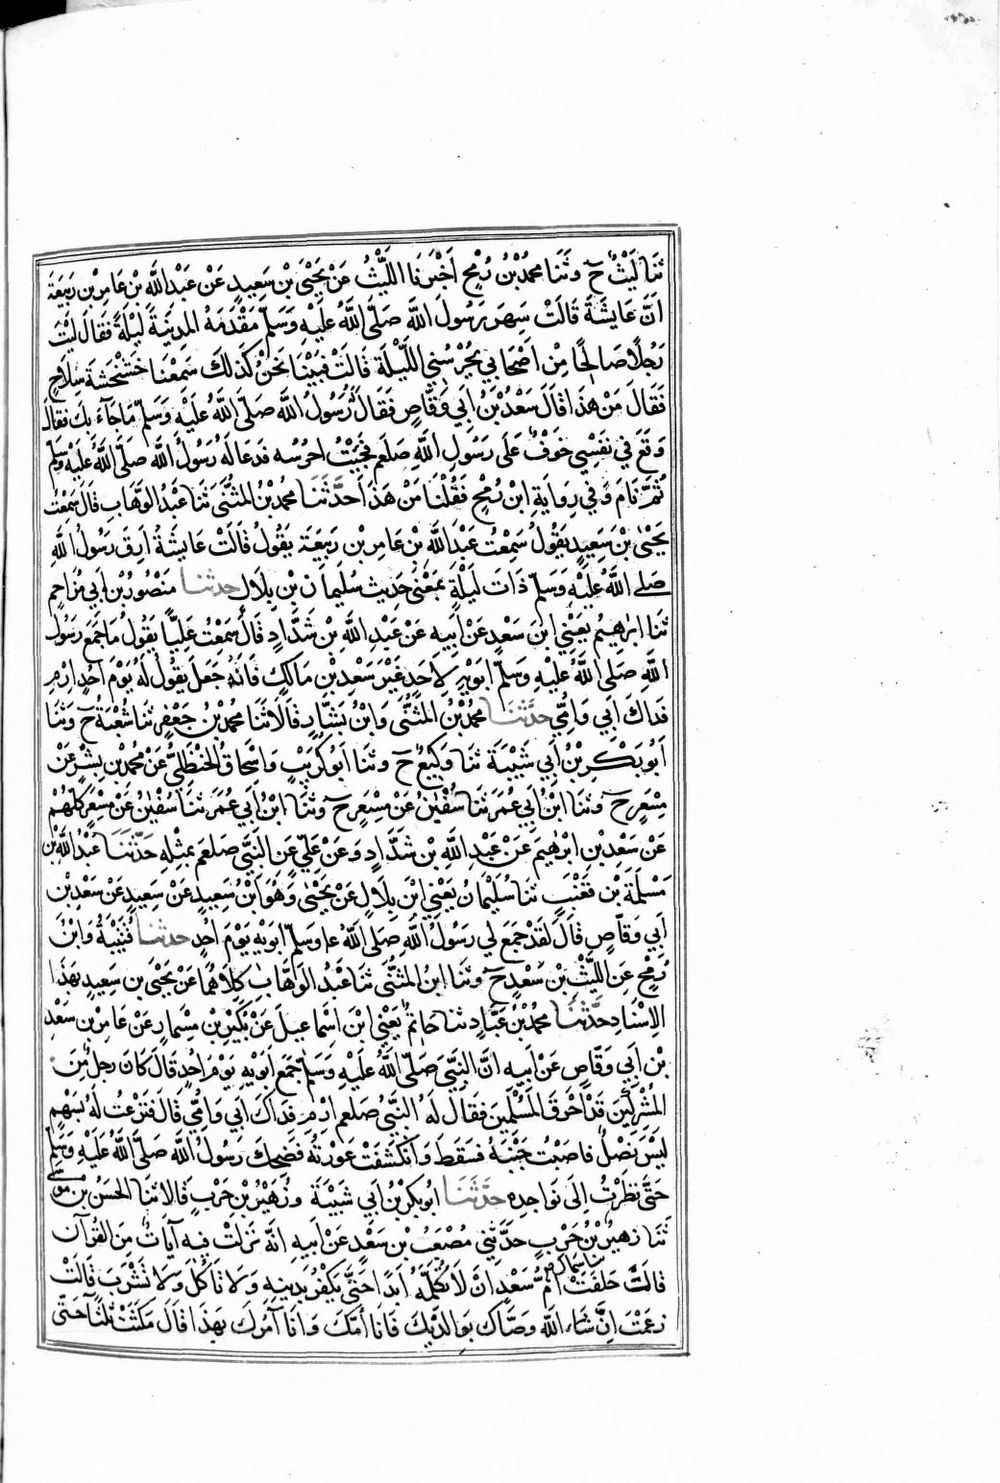 ثَنَا لَيْثٌ ح وثَنَا محمدُ بْنُ رُمْحٍ اَخْبَرَنَا اللَّيْثُ عَنْ يَحْيَى بْنِ سَعِيدٍ عَنْ عَبْدِ اللَّهِ بْنِ عَامِرِ بْنِ رَبِيعَةَ
اَنَّ عَايِشَةَ قَالَتْ سَهِرَ رَسُولُ اللَّهِ صَلَّى اللَّهُ عَلَيْهِ وَسَلَّمَ مَقْدَمَهُ المَدِينَةَ لَيْلَةً فَقَالَ لَيْتَ
رَجُلًا صَالِحًا مِنْ اَصْحَابِي يَحْرُسُنِي اللَّيْلَةَ قَالَتْ فَبَيْنَا نَحْنُ كَذَلِكَ سَمِعْنَا خَشْخَشَةَ سِلَاحٍ
فَقَالَ مَنْ هَذَا قَالَ سَعْدُ بْنُ اَبِي وَقَّاصٍ فَقَالَ لَهُ رَسُولُ اللَّهِ صَلَّى اللَّهُ عَلَيْهِ وَسَلَّمَ مَا جَآءَ بِكَ فقال
وَقَعَ فِي نَفْسِي خَوْفٌ عَلَى رَسُولِ اللَّهِ صَلعم فَجِيْتُ اَحْرُسُه فَدَعَا لَهُ رَسُولُ اللَّهِ صَلَّى اللَّهُ عَلَيْهِ وَسَلَّمَ
ثُمَّ نَامَ وَفِي رِوَايَةِ ابْنِ رُمْحٍ فَقُلْنَا مَنْ هَذَا حَدَّثَنَا محمدُ بْنُ المُثَنَّى ثَنَا عَبْدُ الوَهَّابِ قَالَ سَمِعْتُ
يَحْيَى بْنَ سَعِيدٍ يَقُولُ سَمِعْتُ عَبْدَ اللَّهِ بْنَ عَامِرِ بْنِ رَبِيعَةَ يَقُولُ قَالَتْ عَايِشَةُ اَرِقَ رَسُولُ اللَّهِ
صَلَى اللَّهُ عَلَيْهِ وَسَلَّمَ ذَاتَ لَيْلَةٍ بِمَعْنَى حَدِيثِ سُلَيْمَانَ بْنِ بِلَالٍ حدثنا مَنْصُورُ بْنُ اَبِي مُزَاحِمٍ
ثَنَا اِبْرهِيمُ يَعْنِي ابْنَ سَعْدٍ عَنْ اَبِيهِ عَنْ عَبْدِ اللَّهِ بْنِ شَدَّادٍ قَالَ سَمِعْتُ عَلِيًّا يَقُولُ مَا جَمَعَ رَسُولُ
اللَّهِ صَلَى اللَّهُ عَلَيْهِ وَسَلَّمَ اَبَوَيْهِ لِاَحَدٍ غَيْرَ سَعْدِ بْنِ مَالِكٍ فَاِنَّهُ جَعَلَ يَقُولُ لَهُ يَوْمَ اُحُدٍ اِرْمِ
فِدَاكَ اَبِي وَاُمِّي حَدَّثَنَا محمدُ بْنُ المُثَنَّى وَابْنُ بَشَّارٍ قَالَا ثَنَا محمدُ بْنُ جَعْفَرٍ ثَنَا شُعْبَةُ ح وَثَنَا
اَبُو بَكْرِ بْنُ اَبِي شَيْبَةَ ثَنَا وَكِيعٌ ح وثَنَا اَبُو كُرَيْبٍ وَاِسْحَاقُ الحَنْظَلِيُّ عَنْ محمدِ بْنِ بِشْرٍ عَنْ
مِسْعَرٍ ح وثَنَا ابْنُ اَبِي عُمَرَ ثَنَا سُفْيٰنُ عَنْ مِسْعَرٍ ح وثَنَا ابْنُ اَبِي عُمَرَ ثَنَا سُفْيٰنُ عَنْ مِسْعَرٍ كُلُّهُمْ
عَنْ سَعْدِ بْنِ اِبْرٰهِيمَ عَنْ عَبْدِ اللَّهِ بْنِ شَدَّادٍ وَعَنْ عَلِيٍّ عَنِ النَّبِيِّ صَلعم بِمِثْلِهِ حَدَّثَنَا عَبْدُ اللَّهِ بْنُ
مَسْلَمَةَ بْنِ قَعْنَبٍ ثَنَا سُلَيْمَانُ يَعْنِي ابْنَ بِلَالٍ عَنْ يَحْيَى وَهُوَ ابْنُ سَعِيدٍ عَنْ سَعِيدٍ عَنْ سَعْدِ بْنِ
اَبِي وَقَّاصٍ قَالَ لَقَدْ جَمَعَ لِي رَسُولُ اللَّهِ صَلَى اللَّهُ ع وَسَلَّمَ اَبَوَيْهِ يَوْمَ اُحُدٍ حدثنا قُتَيْبَةُ وَابْنُ
رُمْحٍ عَنِ اللَّيْثِ بْنِ سَعْدٍ ح وثَنَا ابْنُ المُثَنَّى ثَنَا عَبْدُ الوَهَّابِ كِلَاهُمَا عَنْ يَحْيَى بْنِ سَعِيدٍ بِهَذَا
الاِسْنَادِ حَدَّثَنَا محمدُ بْنُ عَبَّادٍ ثنا حَاتِمٌ يَعْنِي ابْنَ اِسْمَاعِيلَ عَنْ بُكَيْرِ بْنِ مِسْمَارٍ عَنْ عَامِرِ بْنِ سَعْدِ
بْنِ اَبِي وَقَّاصٍ عَنْ اَبِيهِ اَنَّ النَّبِيَّ صَلَّى اللَّهُ عَلَيْهِ وَسَلَّمَ جَمَعَ اَبَوَيْهِ يَوْمَ اُحُدٍ قَالَ كَانَ رَجُلٌ مِنَ
المُشْرِكِينَ قَدْ اَحْرَقَ المُسْلِمِينَ فَقَالَ لَهُ النَّبِيُّ صَلعم ارْمِ فِدَاكَ اَبِي وَاُمِّي قَالَ فَنَزَعْتُ لَهُ بِسَهْمٍ
لَيْسَ نَصْلٌ فَاَصَبْتُ جَنْبَهُ فَسَقَطَ وَانْكَشَفَتْ عَوْرَتُهُ فَضَحِكَ رَسُولُ اللَّهِ صَلَّى اللَّهُ عَلَيْهِ وَسَلَّمَ
حَتَّى نَظَرْتُ اِلَى نَوَاجِذِهِ حَدَّثَنَا اَبُو بَكْرِ بْنُ اَبِي شَيْبَةَ وَزُهَيْرُ بْنُ حَرْبٍ قَالَا ثَنَا الحَسَنُ بْنُ مُوسَى
ثَنَا زُهَيْرُ بْنُ حَرْبٍ حَدَّثَنِي مُصْعَبُ بْنُ سَعْدٍ عَنْ اَبِيهِ اَنَّهُ نَزَلَتْ فِيهِ آيَاتٌ مِنَ القُرْآنِ
قَالَتْ حَلَفَتْ اُمُّ سَعْدٍ اَنْ لَا تُكَلِّمَهُ اَبَدًا حَتَّى يَكْفُرَ بِدِينِهِ وَلَا تَاكُلَ وَلَا تَشْرَبَ قَالَتْ
زَعَمْتَ اِنْ شَاءَ اللَّهُ وَصَّاكَ بِوَالِدَيْكَ فَاَنَا اُمُّكَ وَاَنَا آمُرُكَ بِهَذَا قَالَ مَكَثَتْ ثَلٰثًا حَتَّى